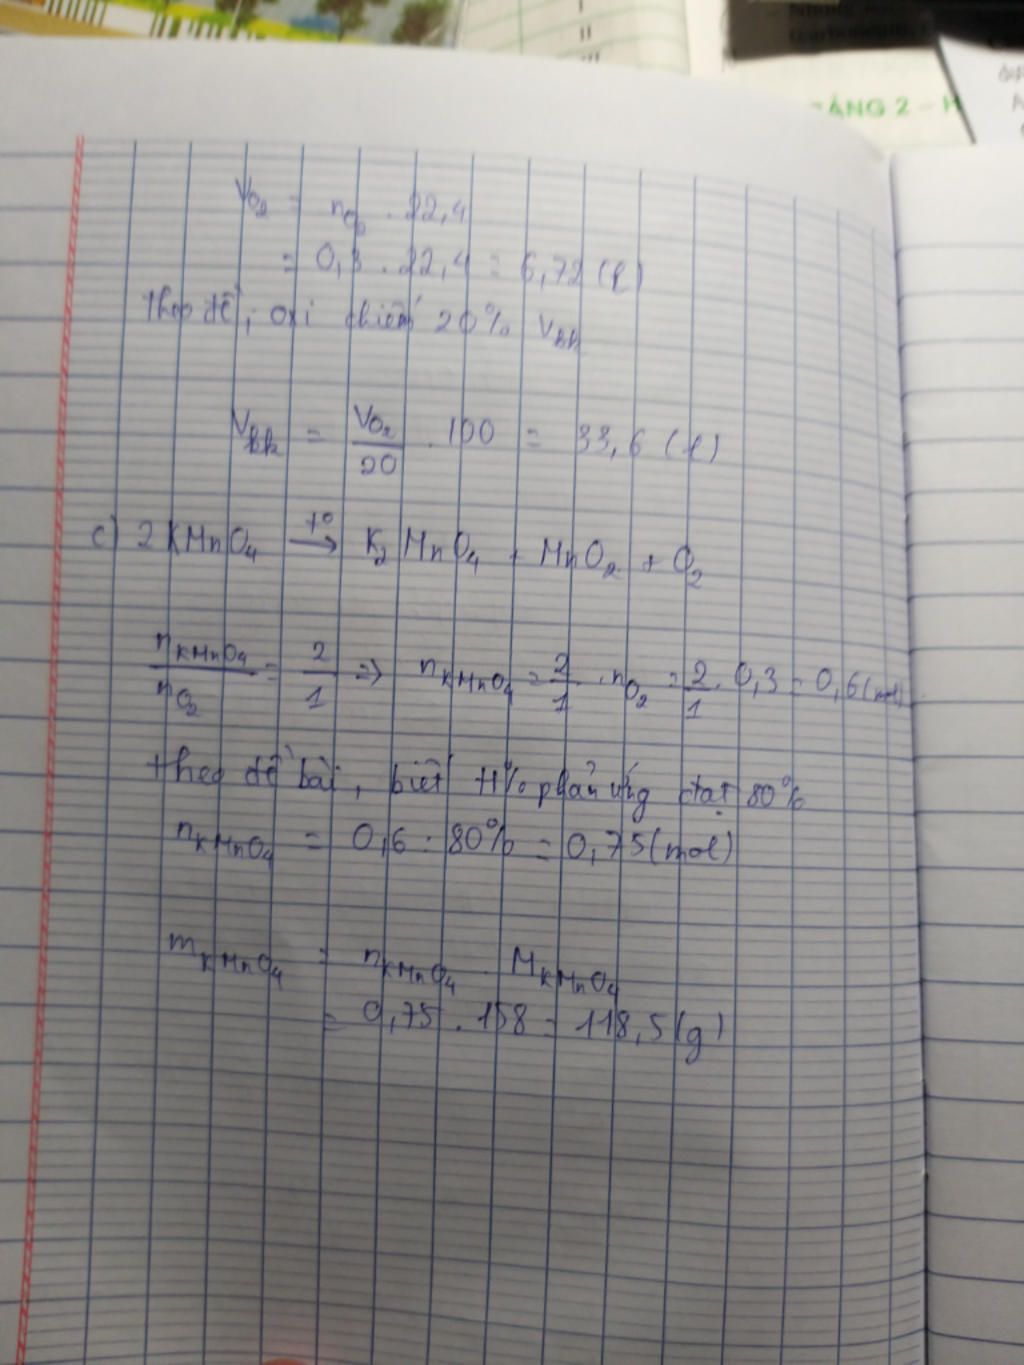 II
III
ẢNG 2 - H
V_O₂ = n_O₂ . 22,4
= 0,3 . 22,4 = 6,72 (l)
Theo đề, oxi chiếm 20% V_kk
V_kk = V_O₂/20 . 100 = 33,6 (l)
c) 2 KMnO₄ →t° K₂MnO₄ + MnO₂ + O₂
n_KMnO₄/n_O₂ = 2/1 => n_KMnO₄ = 2/1 . n_O₂ = 2/1 . 0,3 = 0,6 (mol)
theo đề bài, biết H% phản ứng đạt 80%
n_KMnO₄ = 0,6 : 80% = 0,75 (mol)
m_KMnO₄ = n_KMnO₄ . M_KMnO₄
= 0,75 . 158 = 118,5 (g)